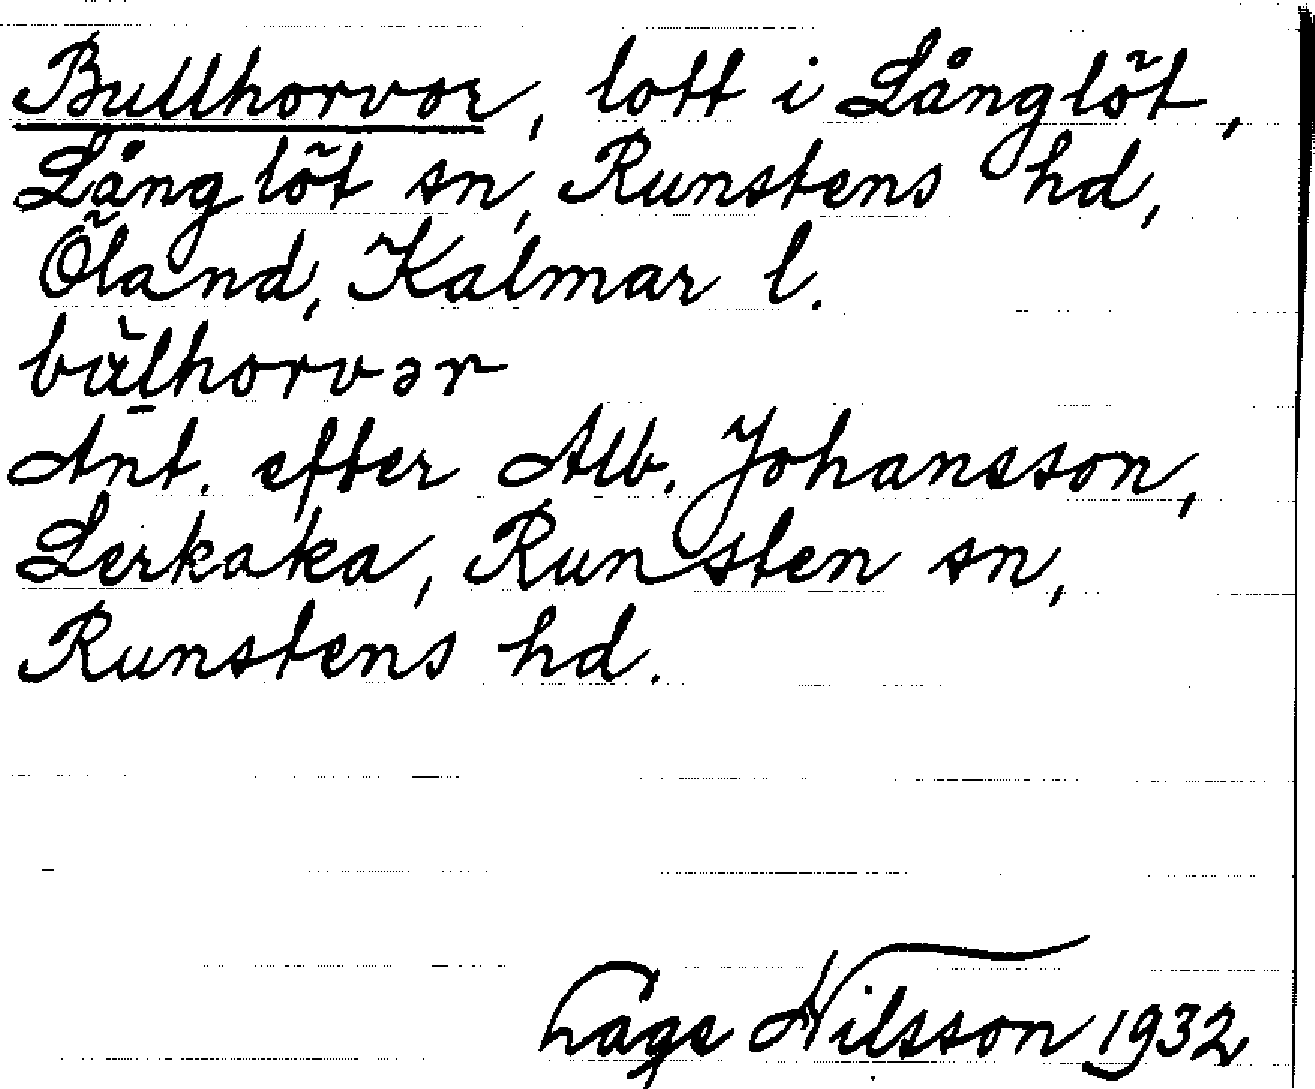 Bullhorvor, lott i Långlöt,
Långlöt sn, Runstens hd,
Öland, Kalmar l.
bùl̠horvər
Ant. efter Alb. Johansson,
Lerkaka, Runsten sn,
Runstens hd.
Lage Nilsson 1932